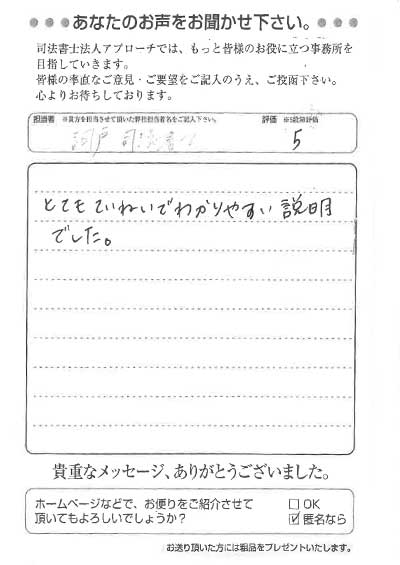 あなたのお声をお聞かせ下さい。
司法書士法人アプローチでは、もっと皆様のお役に立つ事務所を
目指していきます。
皆様の率直なご意見・ご要望をご記入のうえ、ご投函下さい。
心よりお待ちしております。
担当者 ※貴方を担当させて頂いた弊社担当者名をご記入下さい。 評価 ※5段階評価
司 5
とてもていねいでわかりやすい説明
でした。
貴重なメッセージ、ありがとうございました。
ホームページなどで、お便りをご紹介させて
頂いてもよろしいでしょうか?
□ OK
☑ 匿名なら
お送り頂いた方には粗品をプレゼントいたします。